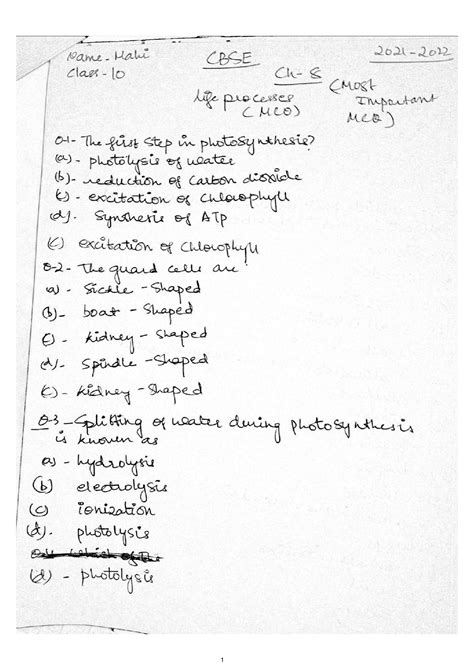 Name - Mahi CBSE 2021-2022
Class - 10 Ch-5
Life processes (Most
(MCQ) Important
MCQ)
Q-1- The first step in photosynthesis?
(a)- photolysis of water
(b)- reduction of Carbon dioxide
(c)- excitation of chlorophyll
(d)- Synthesis of ATP
(c) excitation of Chlorophyll
Q-2- The guard cells are
a) - Sickle - Shaped
(b)- boat - Shaped
c) - kidney - Shaped
(d)- Spindle - Shaped
(c)- kidney - Shaped
Q-3 - Splitting of water during photosynthesis
is known as
a) - hydrolysis
(b) electrolysis
(c) ionization
(d). photolysis
(d) - photolysis
1